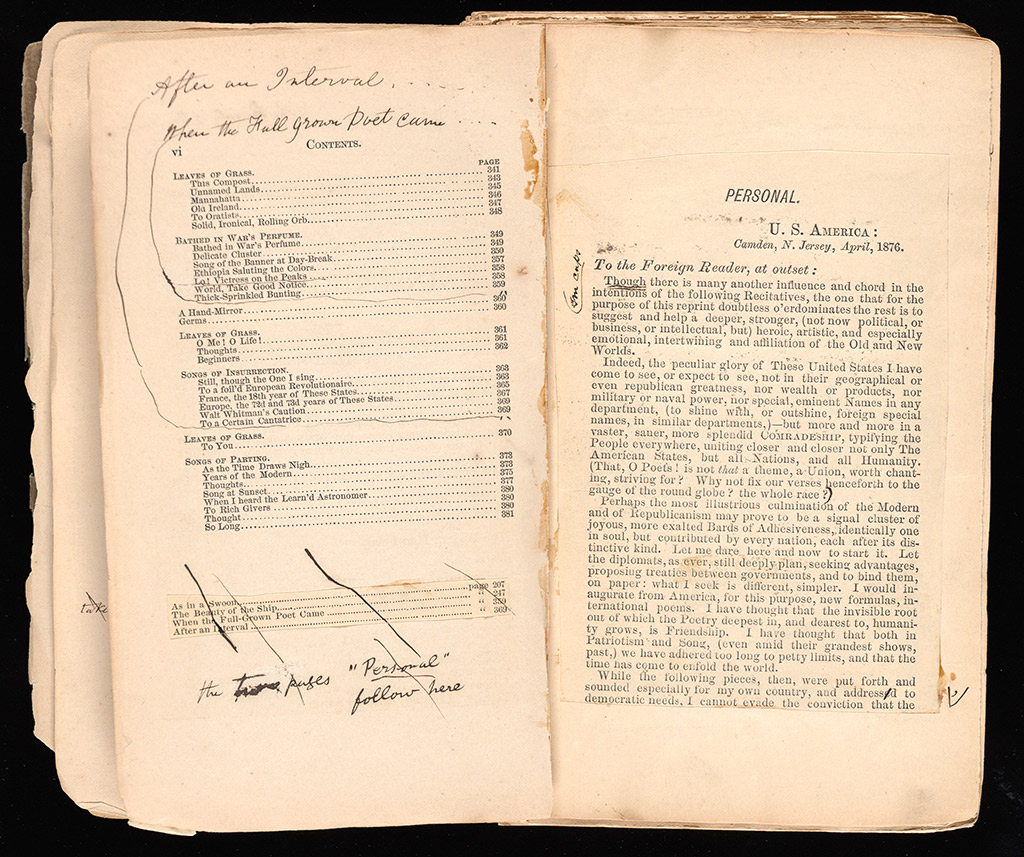 After an Interval. . . . . . .
When the Full Grown Poet came . . . .
vi CONTENTS.
PAGE
LEAVES OF GRASS. 341
This Compost 343
Unnamed Lands 345
Mannahatta 346
Old Ireland 347
To Oratists 348
Solid, Ironical, Rolling Orb
BATHED IN WAR'S PERFUME. 349
Bathed in War's Perfume 349
Delicate Cluster 350
Song of the Banner at Day-Break 357
Ethiopia Saluting the Colors 358
Lo! Victress on the Peaks 358
World, Take Good Notice 359
Thick-Sprinkled Bunting
A Hand-Mirror 360
Germs 360
LEAVES OF GRASS. 361
O Me! O Life! 361
Thoughts 362
Beginners
SONGS OF INSURRECTION. 363
Still, though the One I sing 363
To a foil'd European Revolutionaire 365
France, the 18th year of These States 367
Europe, the 72d and 73d years of These States 369
Walt Whitman's Caution 369
To a Certain Cantatrice
LEAVES OF GRASS. 370
To You
SONGS OF PARTING. 373
As the Time Draws Nigh 373
Years of the Modern 375
Thoughts 377
Song at Sunset 380
When I heard the Learn'd Astronomer 380
To Rich Givers 380
Thought 381
So Long
As in a Swoon page 207
The Beauty of the Ship " 247
When the Full-Grown Poet Came " 359
After an Interval " 369
the pages "Personal"
follow here
take
PERSONAL.
U. S. AMERICA:
Camden, N. Jersey, April, 1876.
To the Foreign Reader, at outset:
Though there is many another influence and chord in the
intentions of the following Recitatives, the one that for the
purpose of this reprint doubtless o'erdominates the rest is to
suggest and help a deeper, stronger, (not now political, or
business, or intellectual, but) heroic, artistic, and especially
emotional, intertwining and affiliation of the Old and New
Worlds.
Indeed, the peculiar glory of These United States I have
come to see, or expect to see, not in their geographical or
even republican greatness, nor wealth or products, nor
military or naval power, nor special, eminent Names in any
department, (to shine with, or outshine, foreign special
names, in similar departments,)—but more and more in a
vaster, saner, more splendid COMRADESHIP, typifying the
People everywhere, uniting closer and closer not only The
American States, but all Nations, and all Humanity.
(That, O Poets! is not that a theme, a Union, worth chant-
ing, striving for? Why not fix our verses henceforth to the
gauge of the round globe? the whole race?)
Perhaps the most illustrious culmination of the Modern
and of Republicanism may prove to be a signal cluster of
joyous, more exalted Bards of Adhesiveness, identically one
in soul, but contributed by every nation, each after its dis-
tinctive kind. Let me dare here and now to start it. Let
the diplomats, as ever, still deeply plan, seeking advantages,
proposing treaties between governments, and to bind them,
on paper: what I seek is different, simpler. I would in-
augurate from America, for this purpose, new formulas, in-
ternational poems. I have thought that the invisible root
out of which the Poetry deepest in, and dearest to, humani-
ty grows, is Friendship. I have thought that both in
Patriotism and Song, (even amid their grandest shows,
past,) we have adhered too long to petty limits, and that the
time has come to enfold the world.
While the following pieces, then, were put forth and
sounded especially for my own country, and addressed to
democratic needs, I cannot evade the conviction that the